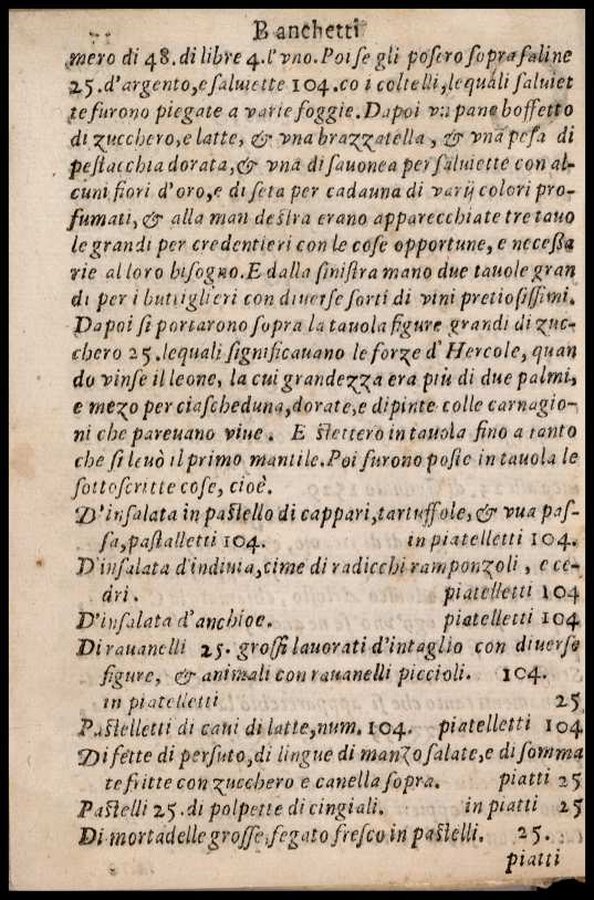 Banchetti
mero di 48. di libre 4. l'vno. Poi se gli posero sopra saline
25. d'argento, e saluiette 104. co i coltelli, lequali saluiet
te furono piegate a varie foggie. Dapoi vn pane boffetto
di zucchero, e latte, & vna brazzatella, & vna pesa di
pestacchia dorata, & vna di sauonea per saluiette con al-
cuni fiori d'oro, e di seta per cadauna di varij colori pro-
fumati, & alla man destra erano apparecchiate tre tauo
le grandi per credentieri con le cose opportune, e necessa
rie al loro bisogno. E dalla sinistra mano due tauole gran
di per i buttiglieri con diuerse sorti di vini pretiosissimi.
Dapoi si portarono sopra la tauola figure grandi di zuc-
chero 25. lequali significauano le forze d'Hercole, quan
do vinse il leone, la cui grandezza era più di due palmi,
e mezo per ciascheduna, dorate, e dipinte colle carnagio-
ni che pareuano viue. E stettero in tauola fino a tanto
che si leuò il primo mantile. Poi furono poste in tauola le
sottoscritte cose, cioè.
D'insalata in pastello di cappari, tartuffole, & vua pas-
sa, pastalletti 104. in piatelletti 104.
D'insalata d'indiuia, cime di radicchi ramponzoli, e ce-
dri. piatelletti 104
D'insalata d'anchioe. piatelletti 104
Di rauanelli 25. grossi lauorati d'intaglio con diuerse
figure, & animali con rauanelli piccioli. 104.
in piatelletti 25
Pastelletti di cani di latte, num. 104. piatelletti 104
Di fette di persuto, di lingue di manzo salate, e di somma
te fritte con zucchero e canella sopra. piatti 25
Pastelli 25. di polpette di cingiali. in piatti 25
Di mortadelle grosse, fegato fresco in pastelli. 25.
piatti